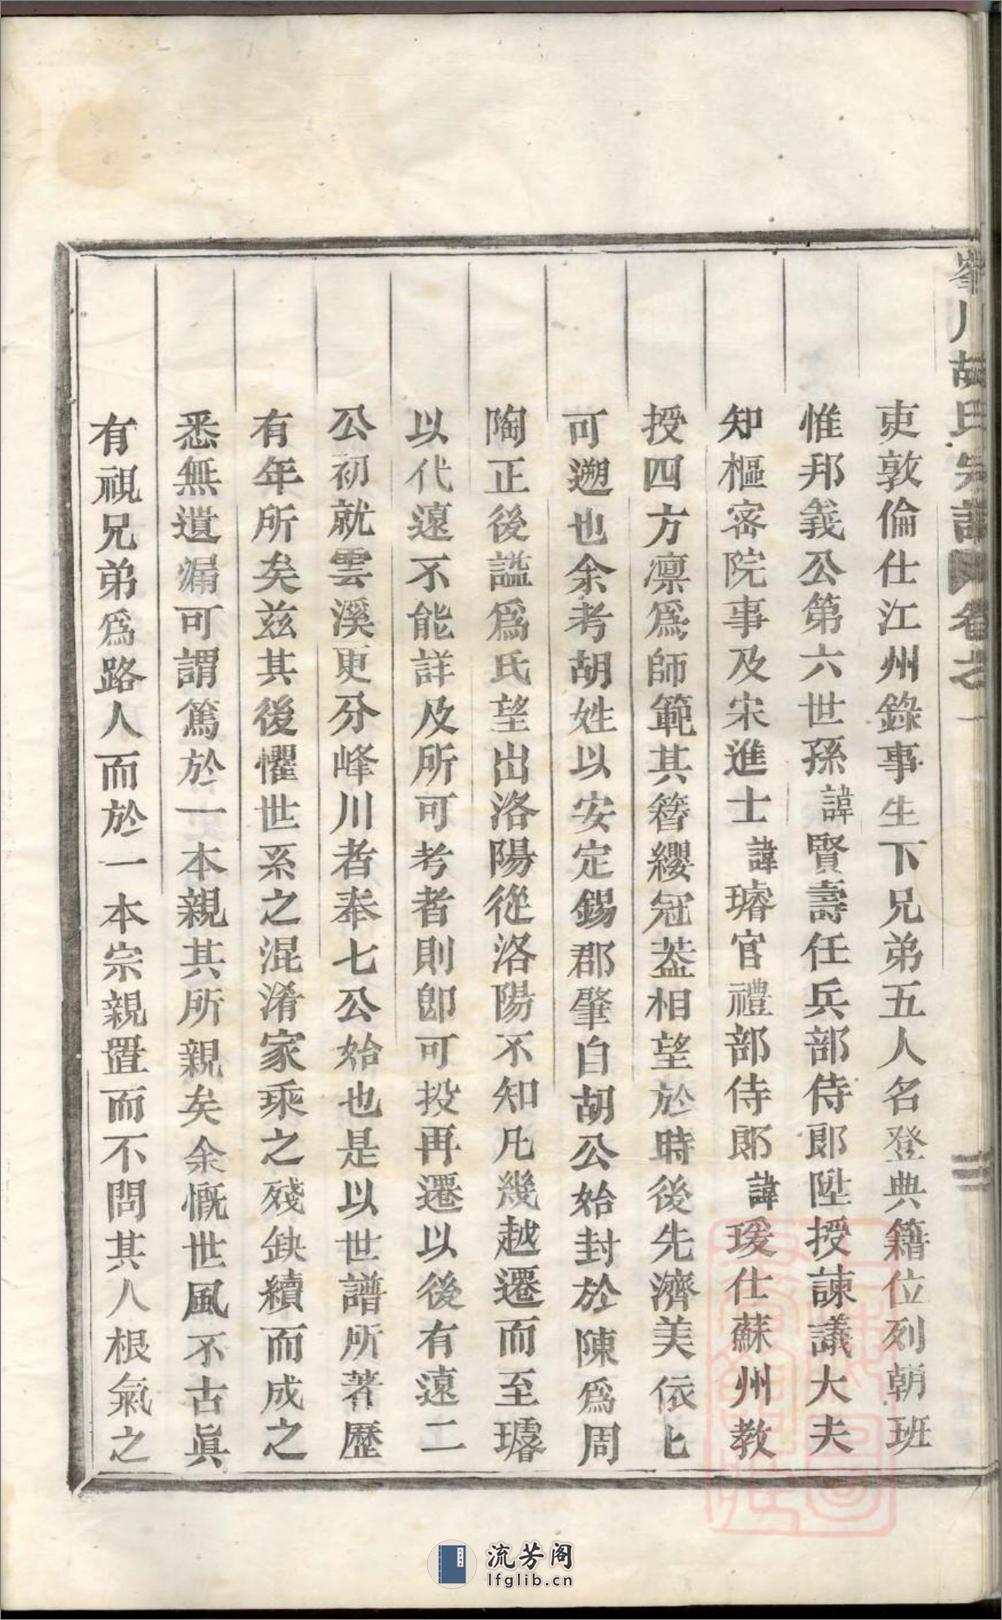 峯川胡氏宗譜 卷之一
吏敦倫仕江州錄事生下兄弟五人名登典籍位列朝班
惟邦義公第六世孫諱賢壽任兵部侍郎陞授諫議大夫
知樞密院事及宋進士諱璿官禮部侍郎諱瑗仕蘇州教
授四方凛爲師範其簪纓冠葢相望於時後先濟美依匕
可遡也余考胡姓以安定錫郡肇自胡公始封於陳爲周
陶正後謚爲氏望出洛陽從洛陽不知凡幾越遷而至璿
以代遠不能詳及所可考者則卽可投再遷以後有遠二
公初就雲溪更分峰川者奉七公始也是以世譜所著歷
有年所矣兹其後懼世系之混淆家乘之殘缺續而成之
悉無遺漏可謂篤於一本親其所親矣余慨世風不古眞
有視兄弟爲路人而於一本宗親置而不問其人根氣之
流芳阁
lfglib.cn